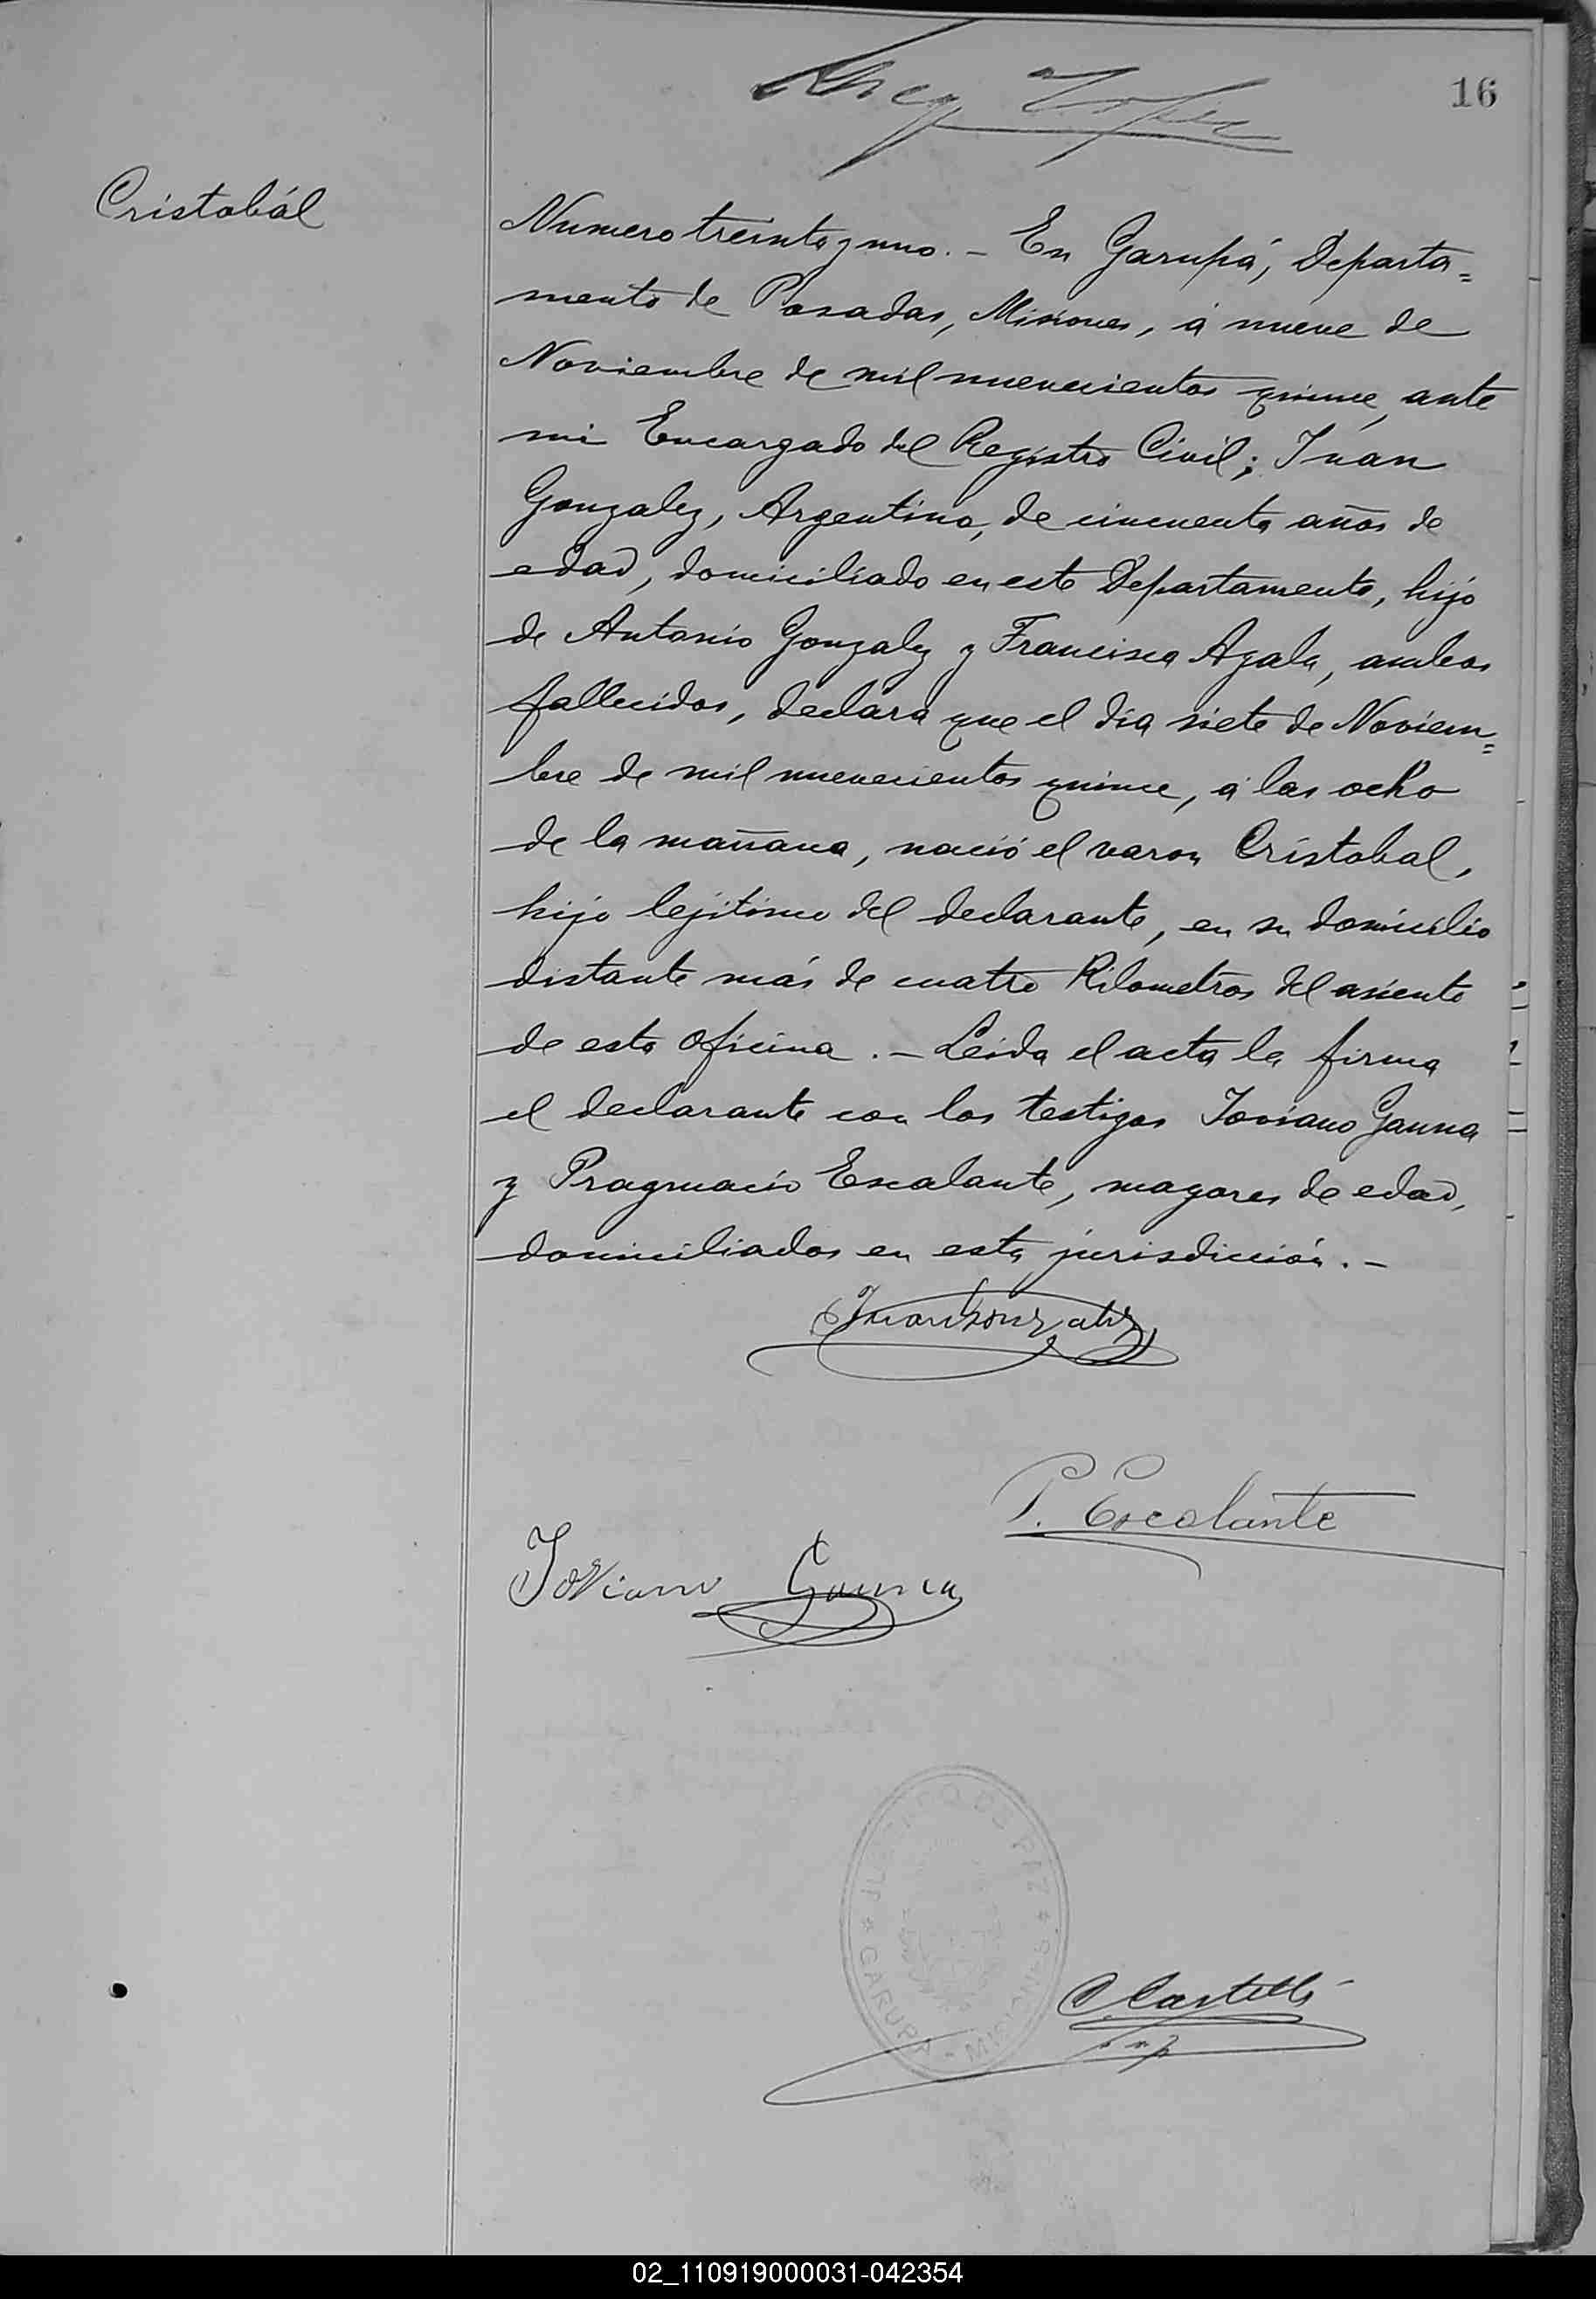 16
Cristobál
Numero treinta y uno. - En Garupá, Departa=
mento de Posadas, Misiones, á nueve de
Noviembre de mil nuevecientos quince, ante
mi Encargado del Registro Civil; Juan
Gonzalez, Argentino, de cincuenta años de
edad, domiciliado en este Departamento, hijo
de Antonio Gonzalez y Francisca Ayala, ambos
fallecidos, declara que el dia siete de Noviem=
bre de mil nuevecientos quince, á las ocho
de la mañana, nació el varon Cristobal,
hijo lejitimo del declarante, en su domicilio
distante más de cuatro Kilometros del asiento
de esta oficina. - Leida el acta la firma
el declarante con los testigos Joviano Gauna
y Pragmacio Escalante, mayores de edad,
domiciliados en esta jurisdicción. -
Juan Gonzalez
P. Escalante
Joviano Gauna
JUZGADO DE PAZ * GARUPA - MISIONES *
Castelli
02_110919000031-042354